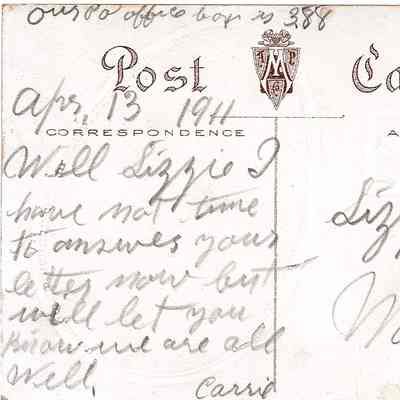 our Po office box is 388
Post Ca
Apr. 13 1911
CORRESPONDENCE A
Well Lizzie I
have not time Liz
to answer your
letter now but
will let you M
know we are all
well.
Carrie